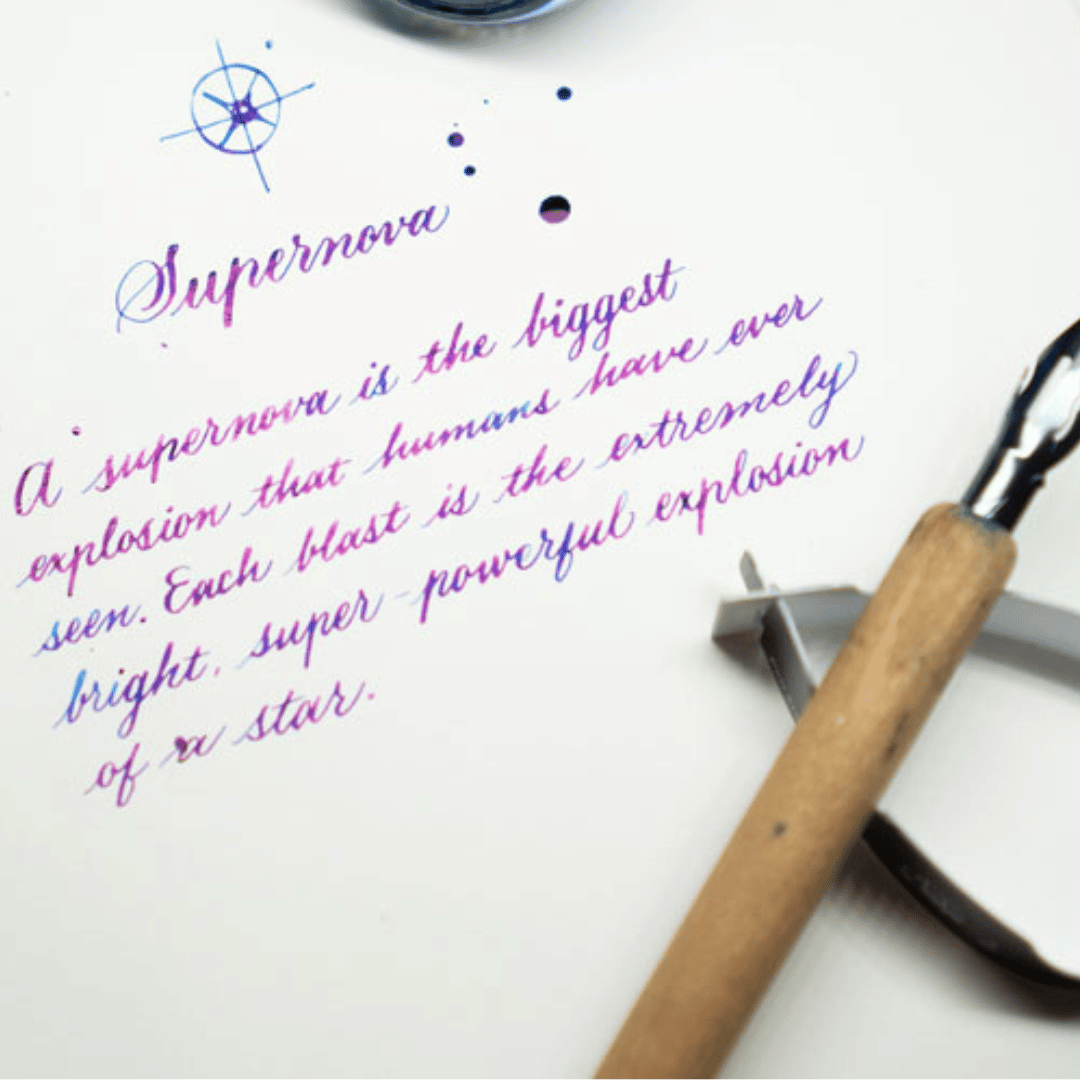 Supernova
A supernova is the biggest
explosion that humans have ever
seen. Each blast is the extremely
bright, super-powerful explosion
of a star.